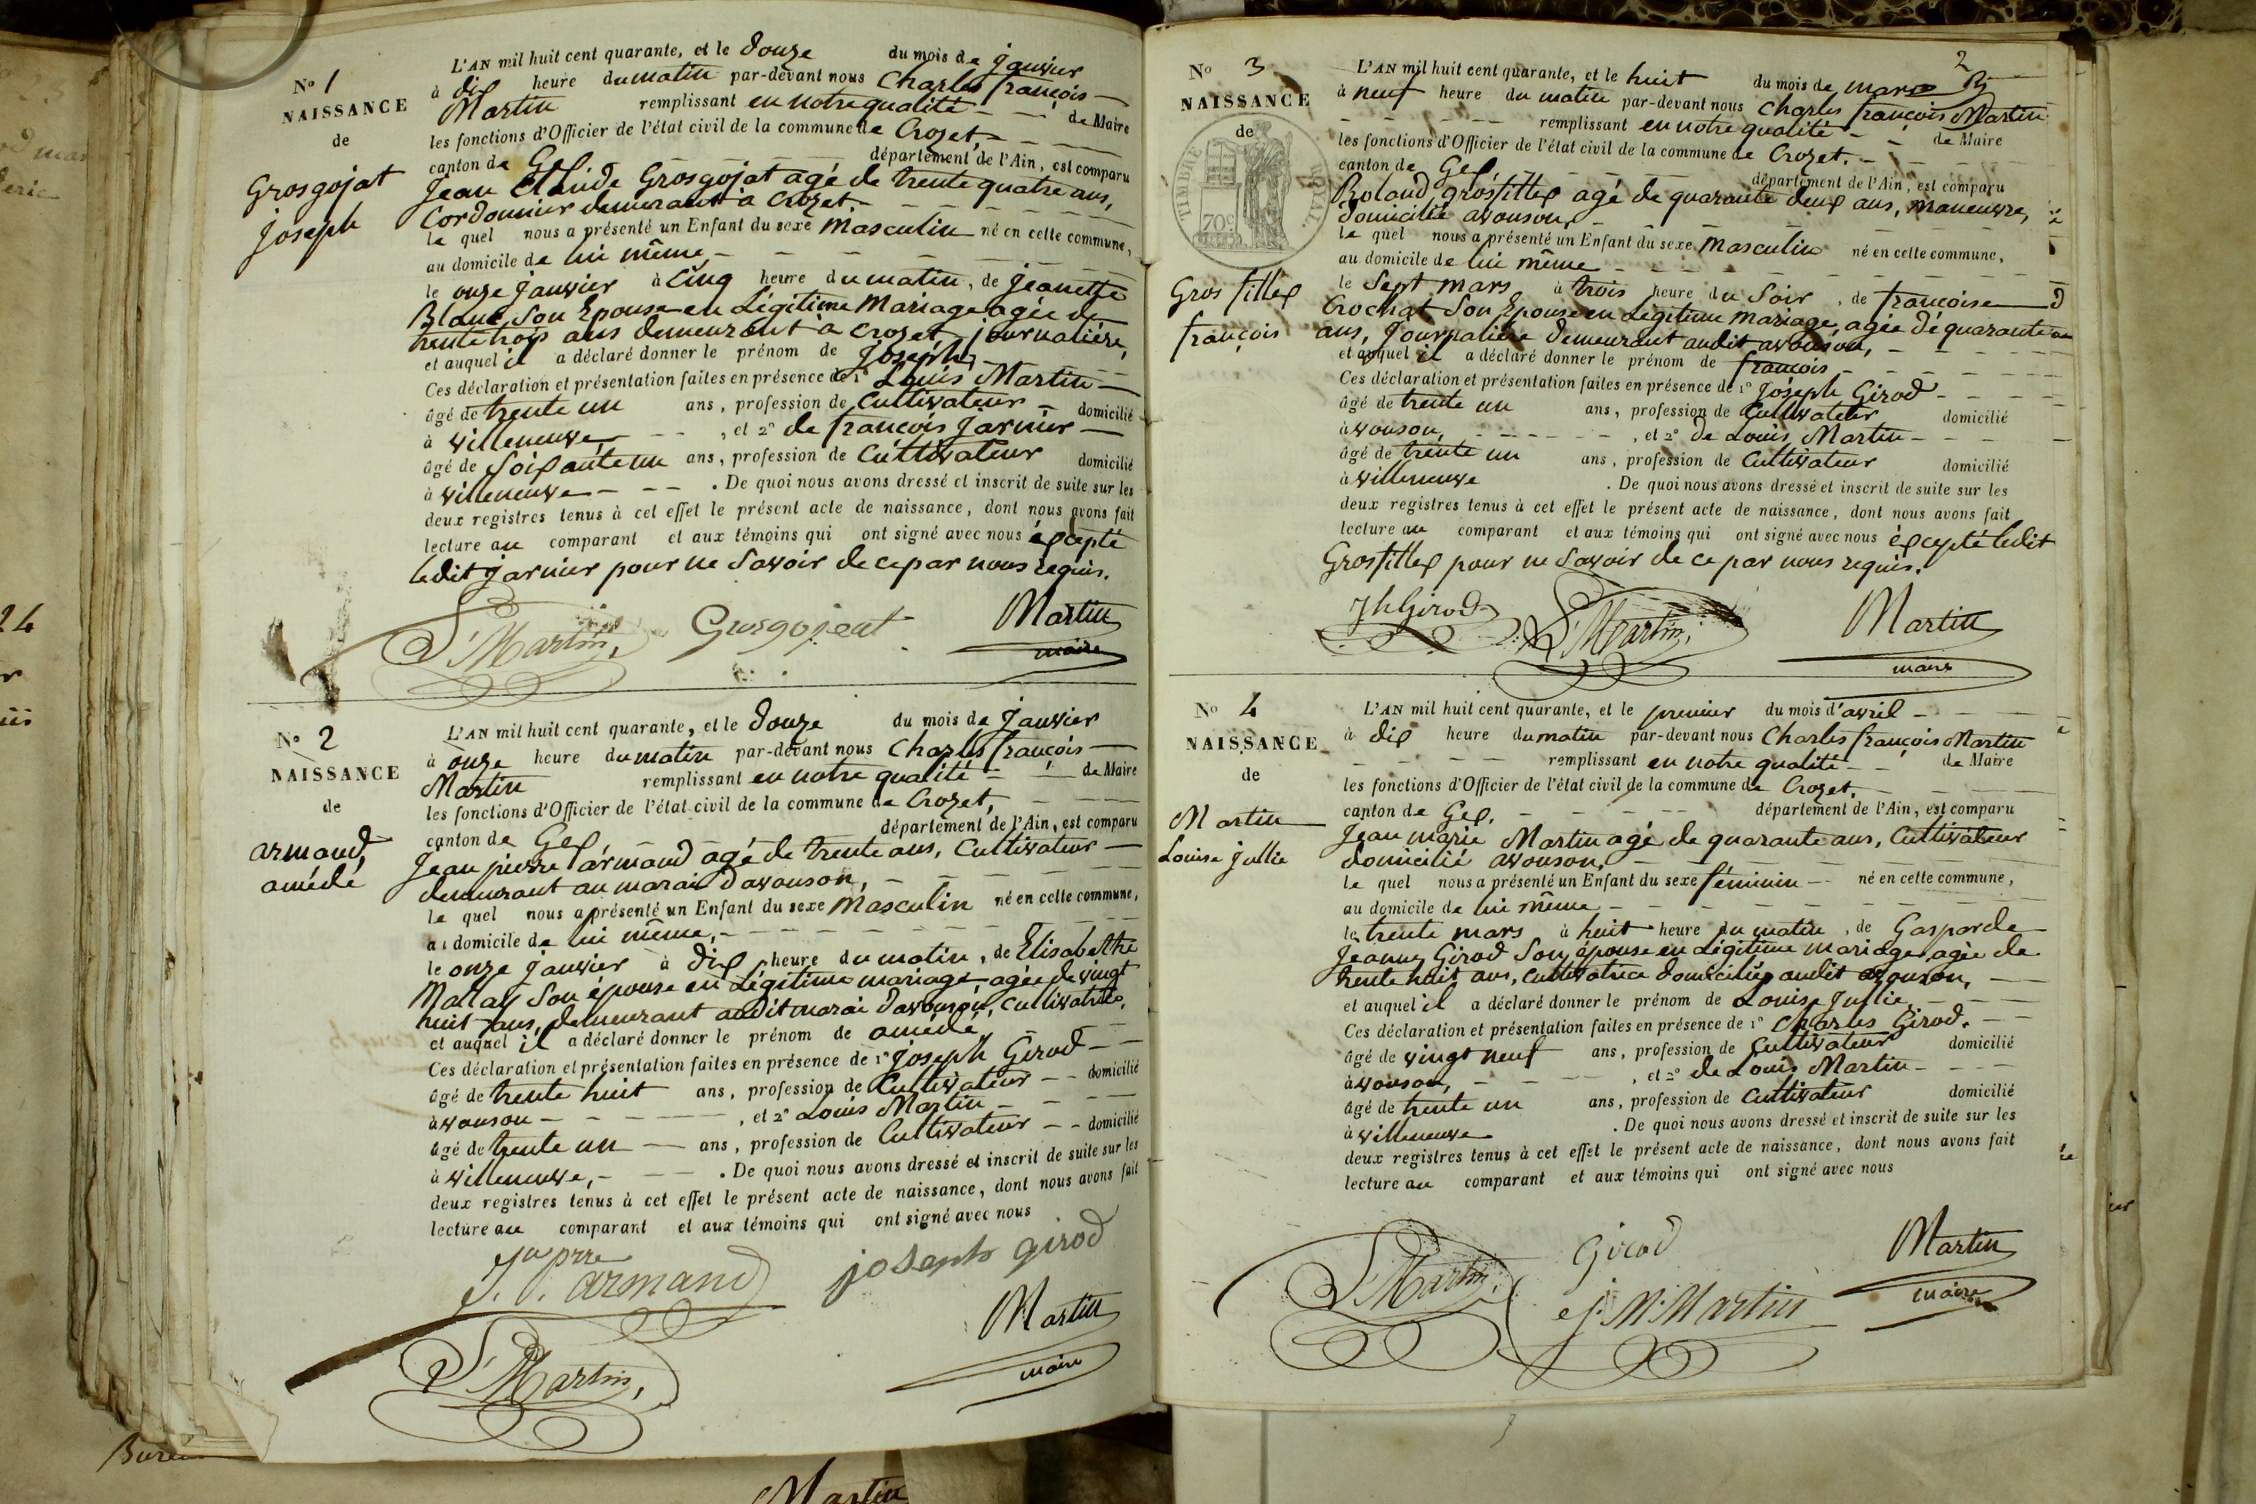 N° 1
NAISSANCE
de
Grosgojat
joseph
L'AN mil huit cent quarante, et le douze du mois de janvier
à dix heure du matin par-devant nous Charles françois
Martin remplissant en notre qualité de Maire
les fonctions d'Officier de l'état civil de la commune de Crozet,
canton de Gex département de l'Ain, est comparu
Jean Claude Grosgojat agé de trente quatre ans,
Cordonnier demeurant à Crozet
le quel nous a présenté un Enfant du sexe Masculin né en cette commune,
au domicile de lui même,
le onze janvier à cinq heure du matin, de Jeanette
Blanc, Son Epouse en Légitime Mariage agée de
trente trois ans demeurant a crozet, journalière,
et auquel il a déclaré donner le prénom de Joseph,
Ces déclaration et présentation faites en présence de 1° Louis Martin
âgé de trente un ans, profession de Cultivateur domicilié
à villeneuve, et 2° de françois Jarnier
âgé de soixante un ans, profession de Cultivateur domicilié
à villeneuve. De quoi nous avons dressé et inscrit de suite sur les
deux registres tenus à cet effet le présent acte de naissance, dont nous avons fait
lecture au comparant et aux témoins qui ont signé avec nous éxcepté
ledit jarnier pour ne Savoir de ce par nous requis.
L. Martin, Grosgojeat Martin
maire
N° 2
NAISSANCE
de
armand,
amédé
L'AN mil huit cent quarante, et le douze du mois de Janvier
à onze heure du matin par-devant nous Charles françois
Martin remplissant en notre qualité de Maire
les fonctions d'Officier de l'état civil de la commune de Crozet,
canton de Gex département de l'Ain, est comparu
Jean pierre armand agé de trente ans, Cultivateur
demeurant au marai d'avouson,
le quel nous a présenté un Enfant du sexe Masculin né en cette commune,
au domicile de lui même,
le onze janvier à dix heure du matin, de Elisabethe
Mallay Son épouse en Légitime mariage agée de vingt
huit ans, demeurant audit marai davouson, cultivatrice,
et auquel il a déclaré donner le prénom de amédé,
Ces déclaration et présentation faites en présence de 1° Joseph Girod
âgé de trente huit ans, profession de Cultivateur domicilié
à avouson, et 2° Louis Martin
âgé de trente un ans, profession de Cultivateur domicilié
à villeneuve,. De quoi nous avons dressé et inscrit de suite sur les
deux registres tenus à cet effet le présent acte de naissance, dont nous avons fait
lecture au comparant et aux témoins qui ont signé avec nous
J. P. armand joseph girod
Martin
L. Martin, maire
2
N° 3
NAISSANCE
de
TIMBRE ROYAL.
70c
Gros fillex
françois
L'AN mil huit cent quarante, et le huit du mois de mars
à neuf heure du matin par-devant nous Charles françois Martin
remplissant en notre qualité de Maire
les fonctions d'Officier de l'état civil de la commune de Crozet.
canton de Gex département de l'Ain, est comparu
Roland grosfillex agé de quarante deux ans, maneuvre,
domicilié avouson,
le quel nous a présenté un Enfant du sexe Masculin né en cette commune,
au domicile de lui même
le Sept mars à trois heure du Soir, de françoise
Crochat Son Epouse en Légitime mariage, agée de quarante
ans, Journalière demeurant audit avouson,
et auquel il a déclaré donner le prénom de françois
Ces déclaration et présentation faites en présence de 1° Joseph Girod
âgé de trente un ans, profession de Cultivateur domicilié
à avouson, et 2° de Louis Martin
âgé de trente un ans, profession de Cultivateur domicilié
à villeneuve. De quoi nous avons dressé et inscrit de suite sur les
deux registres tenus à cet effet le présent acte de naissance, dont nous avons fait
lecture au comparant et aux témoins qui ont signé avec nous éxcepté ledit
Grosfillex pour ne Savoir de ce par nous requis.
Jh Girod L. Martin, Martin
maire
N° 4
NAISSANCE
de
Martin
Louise jullie
L'AN mil huit cent quarante, et le premier du mois d'avril
à dix heure du matin par-devant nous Charles françois Martin
remplissant en notre qualité de Maire
les fonctions d'Officier de l'état civil de la commune de Crozet.
canton de Gex, département de l'Ain, est comparu
Jean marie Martin agé de quarante ans, Cultivateur
domicilié avouson,
le quel nous a présenté un Enfant du sexe féminin né en cette commune,
au domicile de lui même
le trente mars à huit heure du matin, de Gasparde
Jeanne Girod Son épouse en Légitime mariage, agée de
trente huit ans, Cultivatrice domiciliée audit avouson,
et auquel il a déclaré donner le prénom de Louise Jullie,
Ces déclaration et présentation faites en présence de 1° Charles Girod.
âgé de vingt neuf ans, profession de Cultivateur domicilié
à avouson, et 2° de Louis Martin
âgé de trente un ans, profession de Cultivateur domicilié
à villeneuve. De quoi nous avons dressé et inscrit de suite sur les
deux registres tenus à cet effet le présent acte de naissance, dont nous avons fait
lecture au comparant et aux témoins qui ont signé avec nous
L. Martin, Girod Martin
J. M. Martin maire
Martin